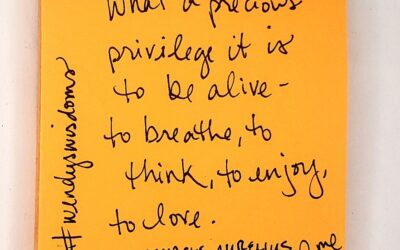 What a precious
privilege it is
to be alive-
to breathe, to
think, to enjoy,
to love.
MARCUS AURELIUS & me
#wendyswisdoms